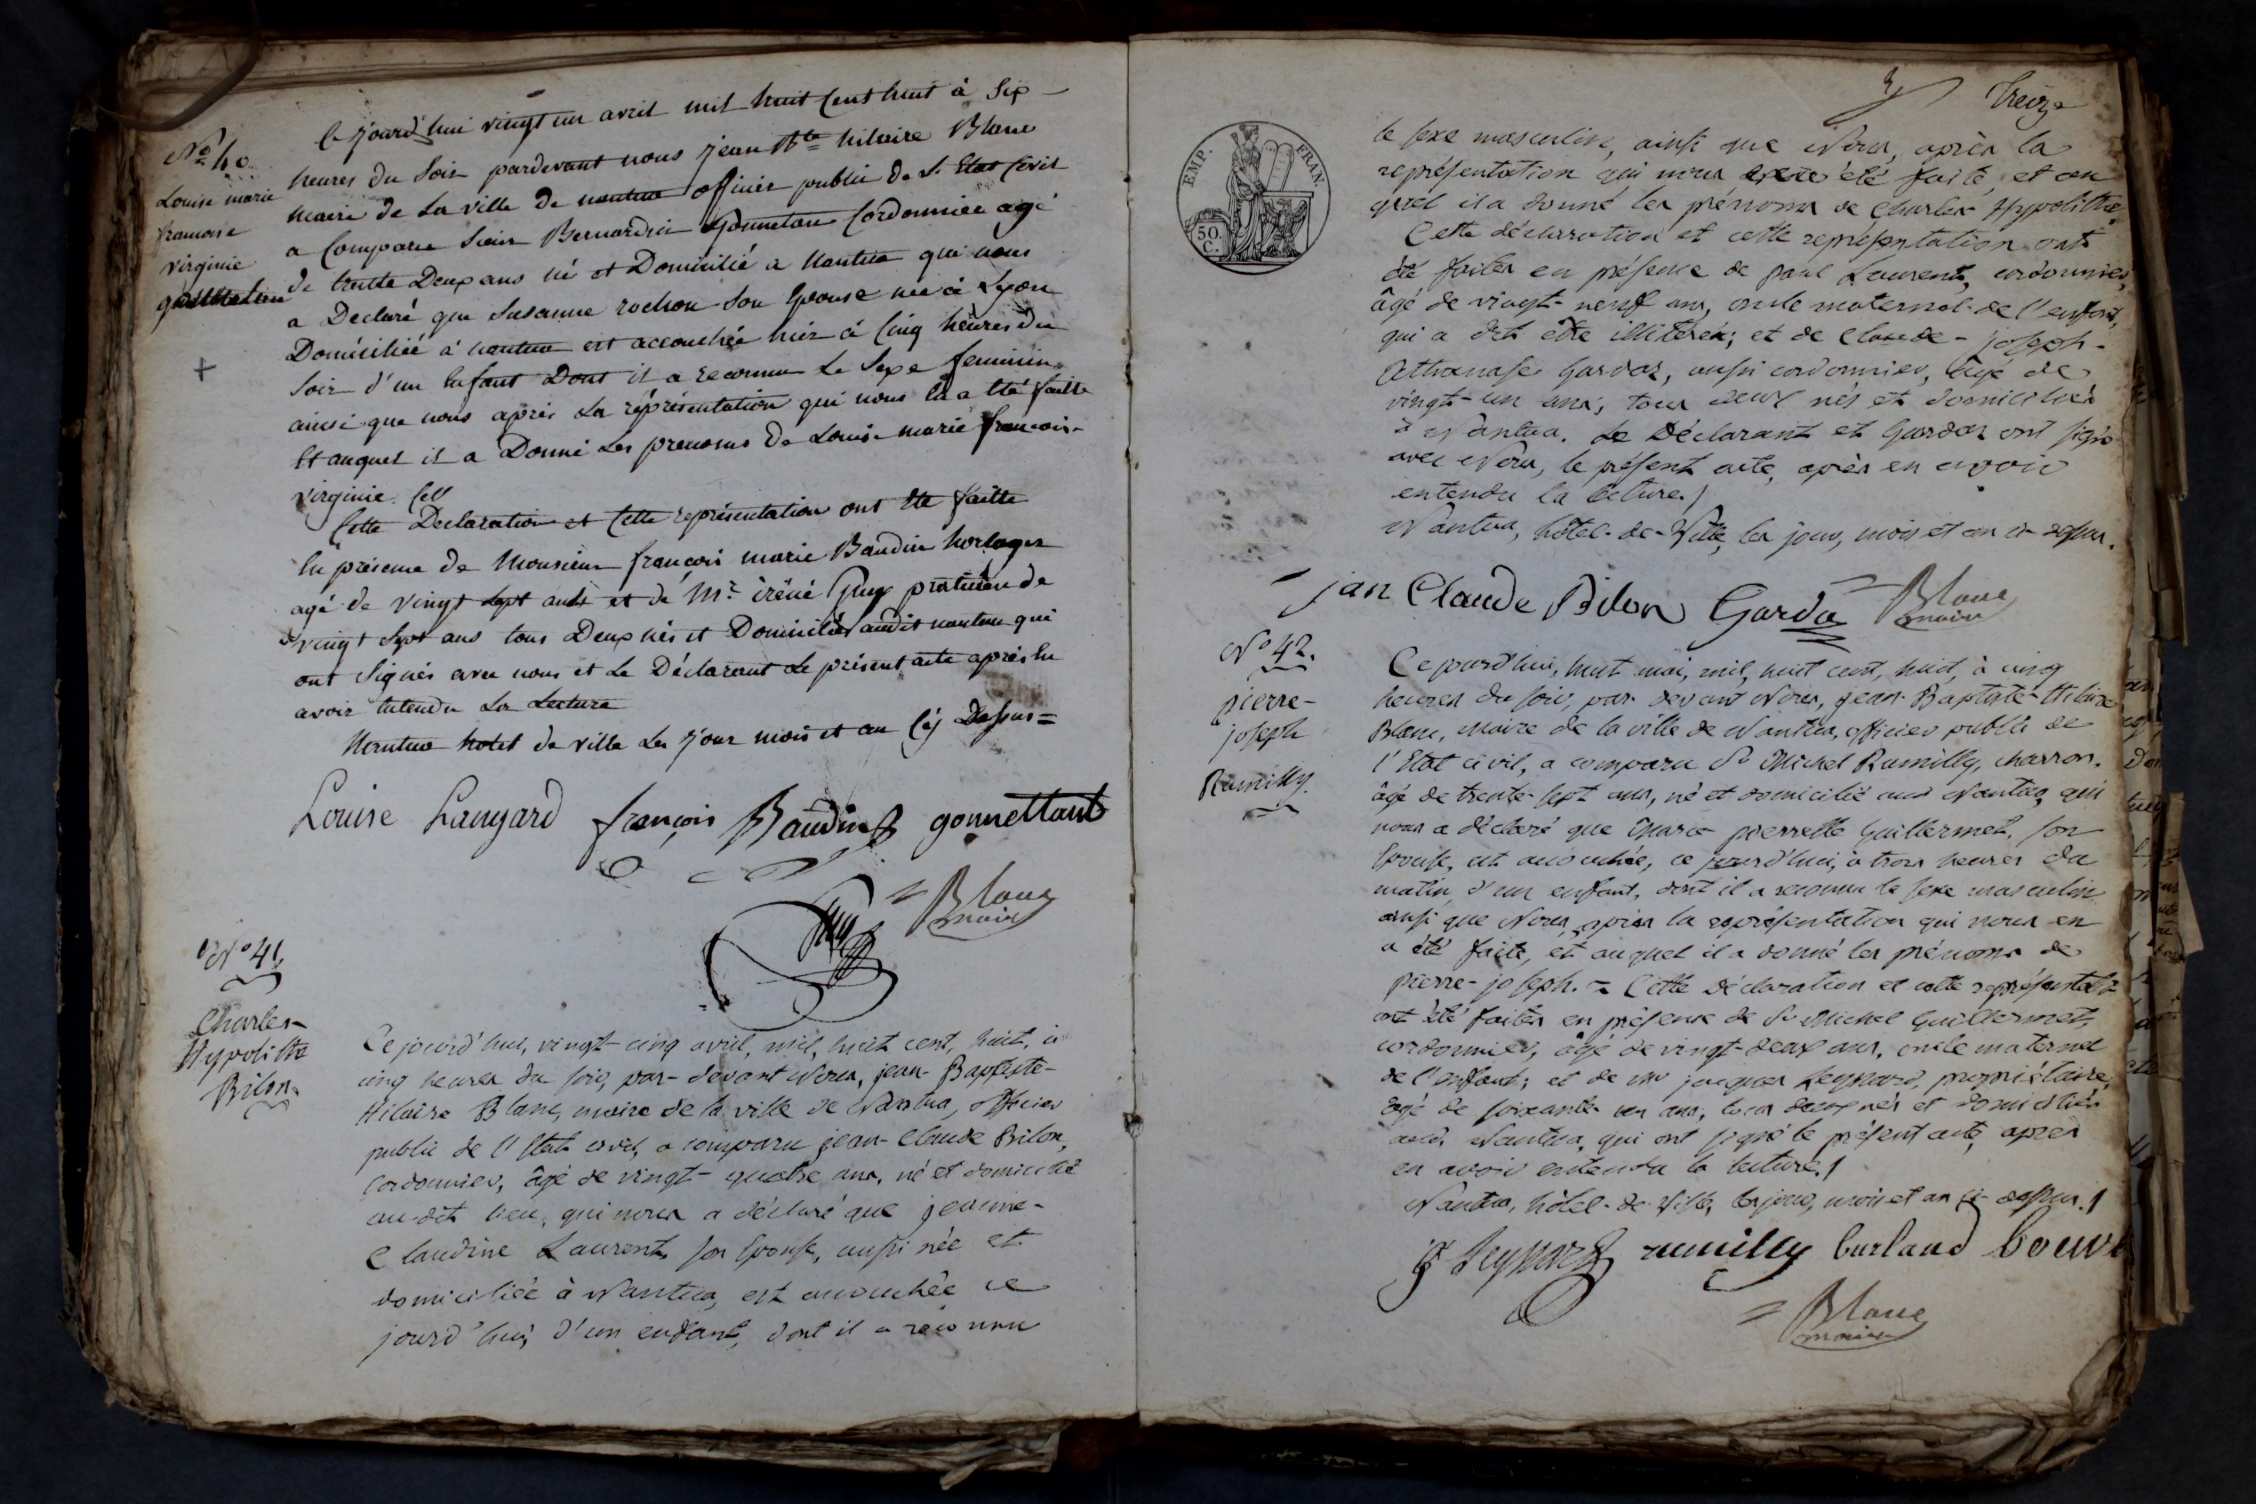 Nº 40.
Louise marie
francoise
virginie
gonnettan
Ce jourd'hui vingt un avril mil huit Cent huit à Six
heures du Soir pardevant nous jean Bte hilaire Blanc
maire de La ville de nantua officier public de L Etat Civil
a Comparu Sieur Bernardin Gonnetan Cordonnier agé
de trente Deux ans né et Domicilié a Nantua qui nous
a Declaré que Susanne rochon Son Epouse née à Lyon
Domiciliée à nantua est accouchée hier à Cinq heures Du
Soir d'un Enfant Dont il a reconnu Le Sexe feminin
ainsi que nous après La représentation qui nous En a été faitte
Et auquel il a Donné Les prenoms De Louise marie francoise
virginie. Cett
Cette Declaration et Cette représentation ont été faitte
En présence De Monsieur françois marie Baudin horloger
agé de vingt Sept ans et de Mr. iréné Guy praticien de
vingt Sept ans tous Deux nés et Domiciliés audit nantua qui
ont Signés avec nous et Le Déclarant Le présent acte après En
avoir Entendu La Lecture
Nantua hotel de ville Les jour mois et an Cy Dessus=
Louise Lanyard françois Baudin gonnettant
Guy
Blanc
maire
Nº 41.
Charles-
Hypolithe
Bilon.
Ce jourd'hui, vingt-cinq avril, mil, huit cent, huit, à
cinq heures du soir, par-devant Nous, jean-Baptiste-
Hilaire Blanc, maire de la ville de Nantua, officier
public de l'Etat civil, a comparu jean-Claude Bilon,
Cordonnier, âgé de vingt-quatre ans, né et domicilié
au-dit lieu, qui nous a déclaré que jeanne-
Claudine Laurent, son Epouse, aussi née et
domiciliée à Nantua, est accouchée, ce
jourd'hui, d'un enfant, dont il a reconnu
Treize
EMP. FRAN.
50.
C.
le sexe masculin, ainsi que Nous, après la
représentation qui nous en a été faite, et au
quel il a donné les prénoms de Charles-Hypolithe.
Cette déclaration et cette représentation ont
été faites en présence de paul Laurent, cordonnier,
âgé de vingt-neuf ans, oncle maternel de l'enfant,
qui a dit être illitéré; et de Claude-joseph-
Athanase Gardaz, aussi cordonnier, âgé de
vingt-un ans, tous deux nés et domiciliés
à Nantua. Le Déclarant et Gardaz ont signé
avec Nous, le présent acte, après en avoir
entendu la lecture./
Nantua, hôtel-de-Ville, les jour, mois et an ci-dessus.
jan Claude Bilon Garda Blanc
maire
Nº 42.
pierre-
joseph
Rumilly.
Ce jourd'hui, huit mai, mil, huit cent, huit, à cinq
heures du soir, par-devant Nous, jean-Baptiste-Hilaire
Blanc, Maire de la ville de Nantua, officier public de
l'Etat civil, a comparu Sr Michel Rumilly, charron,
âgé de trente-sept ans, né et domicilié aud. Nantua, qui
nous a déclaré que Marie pierrette Guillermet, son
Epouse, est accouchée, ce jourd'hui, à trois heures du
matin, d'un enfant, dont il a reconnu le sexe masculin
ainsi que Nous, après la représentation qui nous en
a été faite, et auquel il a donné les prénoms de
pierre-joseph. = Cette déclaration et cette représentat.on
ont été faites en présence de Sr Michel Guillermet,
cordonnier, âgé de vingt-deux ans, oncle maternel
de l'enfant; et de Mr jacques Leyssard, propriétaire,
âgé de soixante-un ans, tous deux nés et domiciliés
aud. Nantua, qui ont signé le présent acte, après
en avoir entendu la lecture./
Nantua, hôtel-de-Ville, les jour, mois et an ci-dessus./
Leyssard rumilly burland bouvi
Blanc
maire